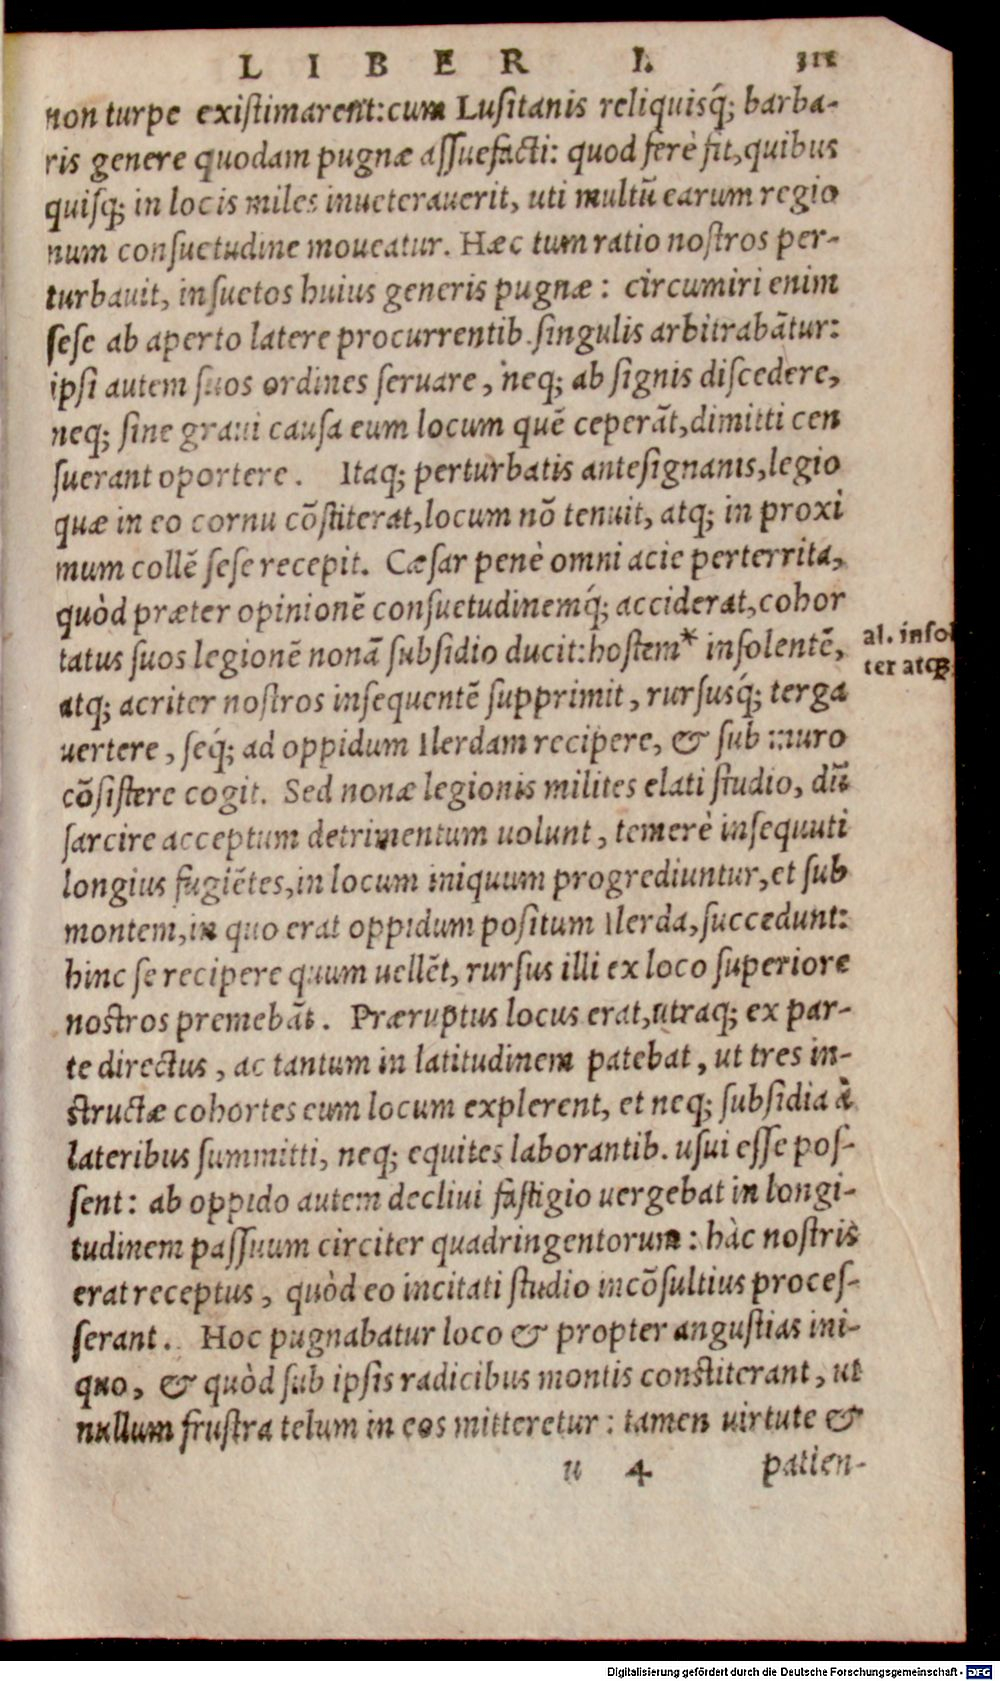 LIBER I. 311
non turpe exiſtimarent: cum Luſitanis reliquisq́; barba-
ris genere quodam pugnæ aſſuefacti: quod ferè fit, quibus
quiſq; in locis miles inueterauerit, uti multũ earum regio
num conſuetudine moueatur. Hæc tum ratio noſtros per-
turbauit, inſuetos huius generis pugnæ: circumiri enim
ſeſe ab aperto latere procurrentib. ſingulis arbitrabãtur:
ipſi autem ſuos ordines ſeruare, neq; ab ſignis diſcedere,
neq; ſine graui cauſa eum locum quẽ ceperãt, dimitti cen
ſuerant oportere. Itaq; perturbatis anteſignanis, legio
quæ in eo cornu cõſtiterat, locum nõ tenuit, atq; in proxi
mum collẽ ſeſe recepit. Cæſar penè omni acie perterrita,
quòd præter opinionẽ conſuetudinemq́; acciderat, cohor
tatus ſuos legionẽ nonã ſubſidio ducit: hoſtem* inſolentẽ,
al. inſol
ter atq́;
atq; acriter noſtros inſequentẽ ſupprimit, rurſusq́; terga
uertere, ſeq́; ad oppidum Ilerdam recipere, & ſub muro
cõſiſtere cogit. Sed nonæ legionis milites elati ſtudio, dũ
ſarcire acceptum detrimentum uolunt, temerè inſequuti
longius fugiẽtes, in locum iniquum progrediuntur, et ſub
montem, in quo erat oppidum poſitum Ilerda, ſuccedunt:
hinc ſe recipere quum uellẽt, rurſus illi ex loco ſuperiore
noſtros premebãt. Præruptus locus erat, utraq; ex par-
te directus, ac tantum in latitudinem patebat, ut tres in-
ſtructæ cohortes eum locum explerent, et neq; ſubſidia à
lateribus ſummitti, neq; equites laborantib. uſui eſſe poſ-
ſent: ab oppido autem decliui faſtigio uergebat in longi-
tudinem paſſuum circiter quadringentorum: hàc noſtris
erat receptus, quòd eo incitati ſtudio incõſultius proceſ-
ſerant. Hoc pugnabatur loco & propter anguſtias ini-
quo, & quòd ſub ipſis radicibus montis conſtiterant, ut
nullum fruſtra telum in eos mitteretur: tamen uirtute &
u 4 patien-
Digitalisierung gefördert durch die Deutsche Forschungsgemeinschaft - DFG